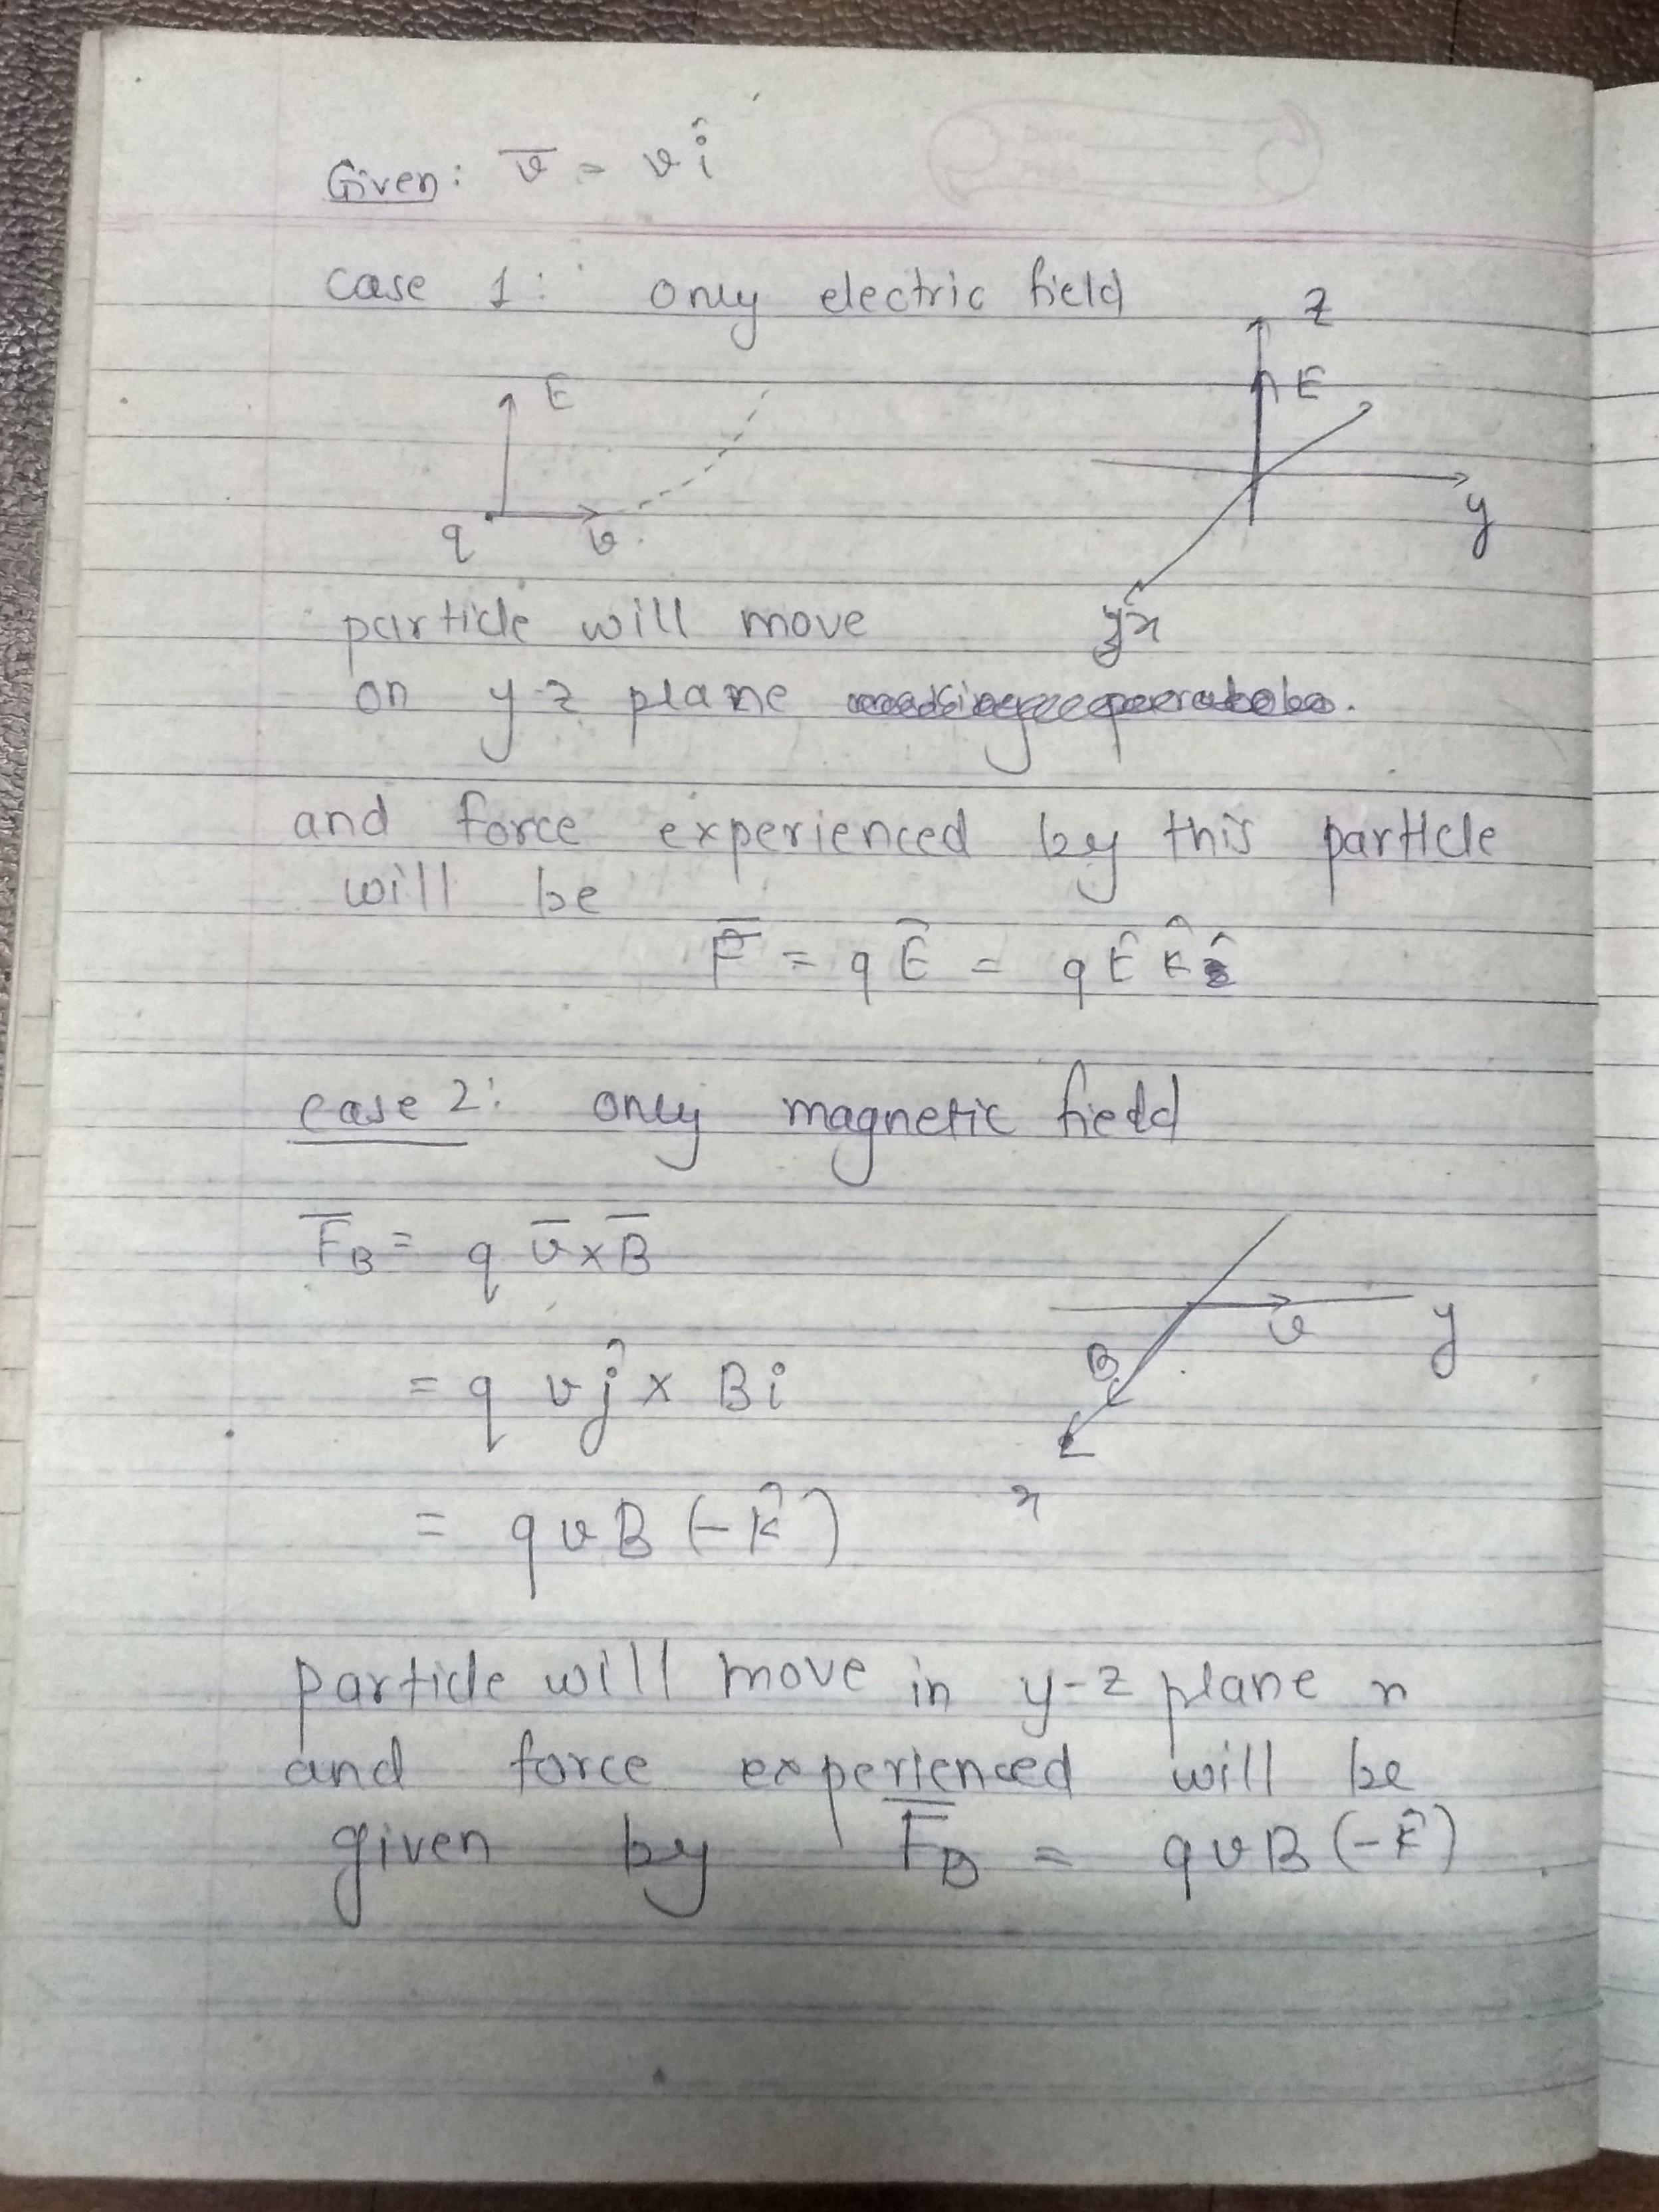 Given: v̅ = v î
case 1: only electric field
z
E
E
q v
y
x
particle will move
on y-z plane
and force experienced by this particle
will be
F̅ = q E̅ = q E k̂
case 2: only magnetic field
F̅B = q v̅ × B̅
v y
B
= q v ĵ × B i
x
= q v B (-k̂)
particle will move in y-z plane
and force experienced will be
given by F̅B = q v B (-k̂)